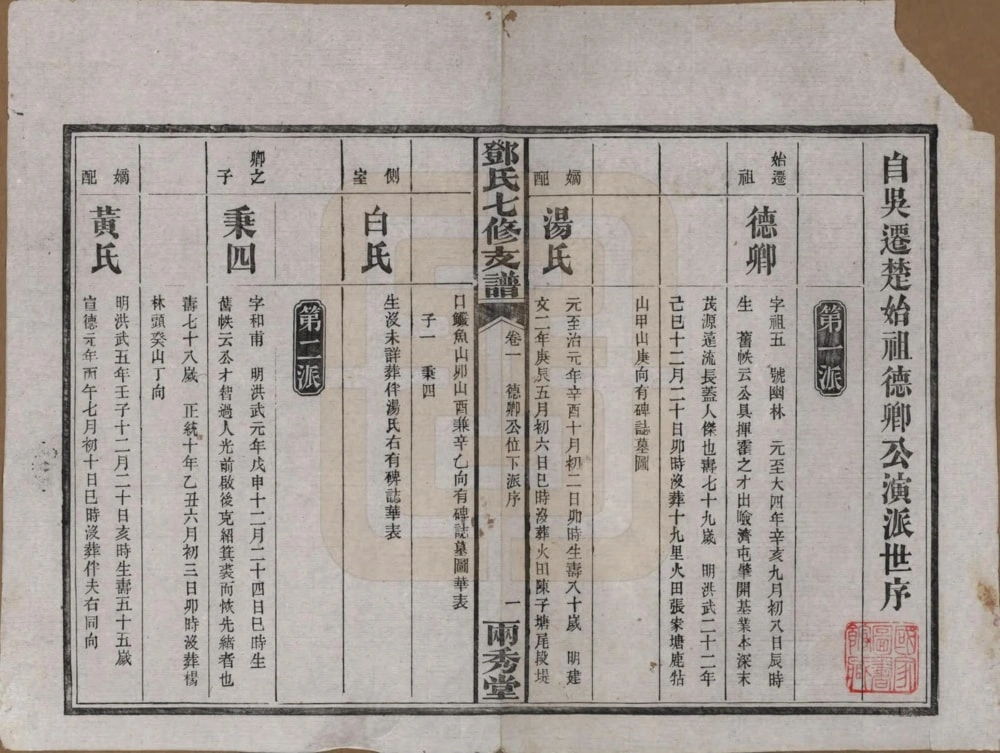 自吳遷楚始祖德卿公演派世序
第一派
始遷祖
德卿
字祖五　號幽林　元至大四年辛亥九月初八日辰時
生　舊帙云公具揮霍之才出險濟屯肇開基業本深末
茂源遠流長蓋人傑也壽七十九歲　明洪武二十二年
己巳十二月二十日卯時沒葬十九里火田張家塘鹿牯
山甲山庚向有碑誌墓圖
嫡配
湯氏
元至治元年辛酉十月初二日卯時生壽八十歲　明建
文二年庚辰五月初六日巳時沒葬火田陳子塘尾茛堤
鄧氏七修支譜
卷一　德卿公位下派序
一
兩秀堂
口鱸魚山卯山酉兼辛乙向有碑誌墓圖華表
子一　秉四
側室
白氏
生沒未詳葬伴湯氏右有碑誌華表
第二派
卿之子
秉四
字和甫　明洪武元年戊申十二月二十四日巳時生
舊帙云公才智過人光前啟後克紹箕裘而恢先緒者也
壽七十八歲　正統十年乙丑六月初三日卯時沒葬楊
林頭癸山丁向
嫡配
黃氏
明洪武五年壬子十二月二十日亥時生壽五十五歲
宣德元年丙午七月初十日巳時沒葬伴夫右同向